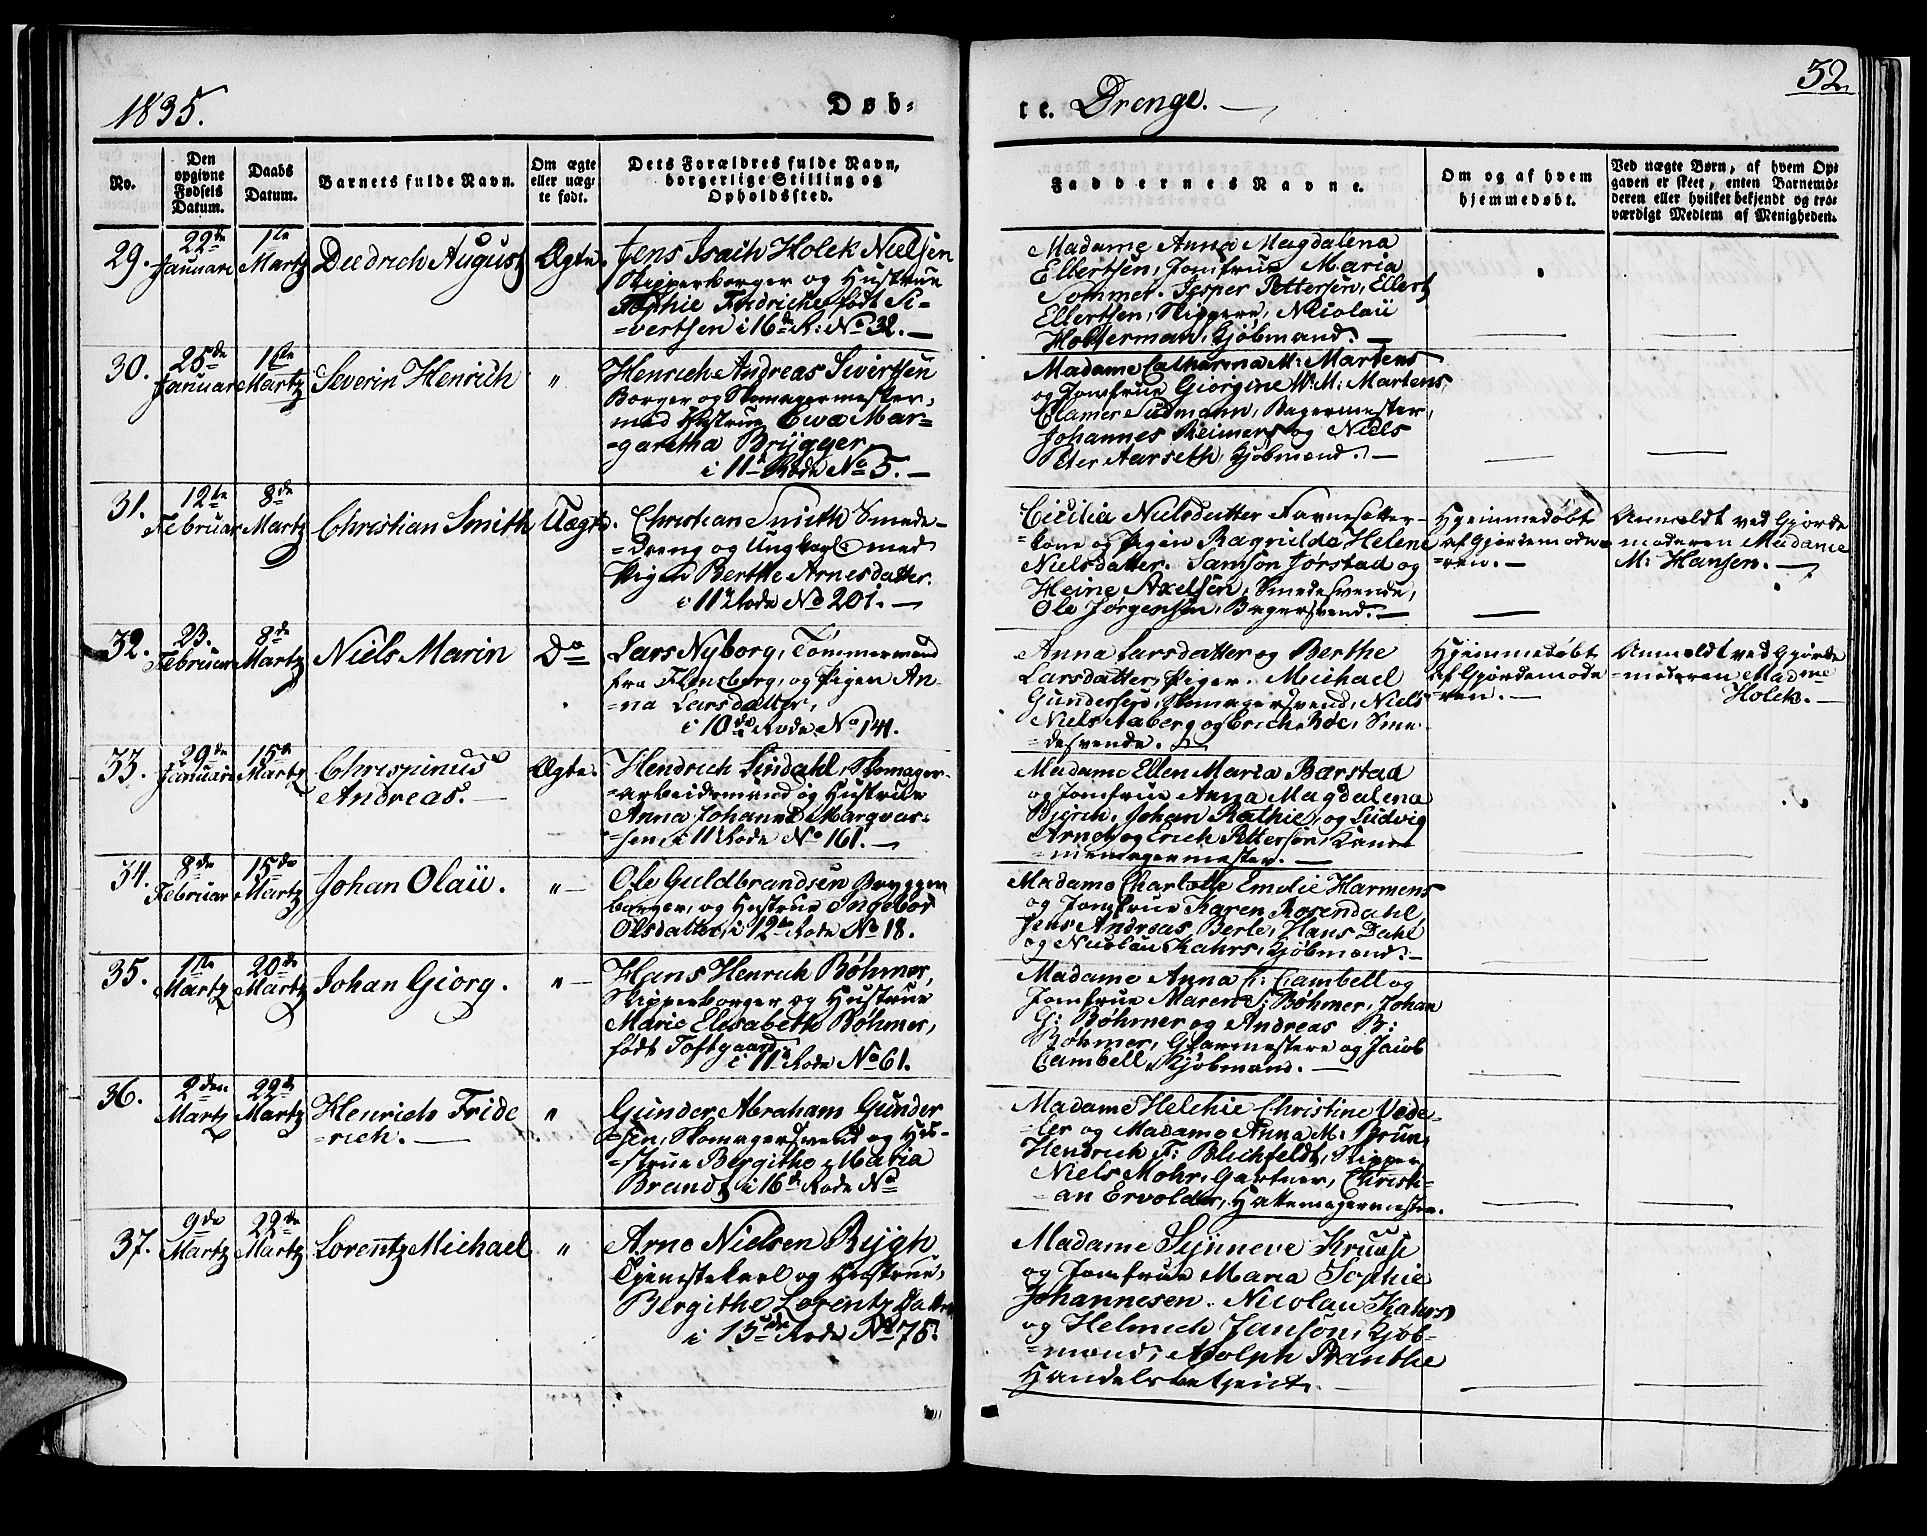 1835.
Døb-
te. Drenge.
32.
No.
Den opgivne Fødsels Datum.
Daabs Datum.
Barnets fulde Navn.
Om ægte eller uæg-te født.
Dets Forældres fulde Navn, borgerlige Stilling og Opholdssted.
Faddernes Navne.
Om og af hvem hjemmedøbt.
Ved uægte Børn, af hvem Op-
gaven er skeet, enten Barnemo-
deren eller hvilket bekjendt og tro-
værdigt Medlem af Menigheden.
29. 22de Januari 1ste Martz Diedrich August Ægte.
Jens Isach Holck Nielsen
Skipperborger og Hustrue
Sophie Fridriche født Si-
=vertsen i 16de R: No 32. —
Madame Anna Magdalena
Ellertsen, Jomfrue Maria
Sommer. Jesper Pettersen, Ellert
Ellertsen, Skippere, Nicolaii
Holterman, Kjøbmænd. —
30. 25de Januar 1ste Martz Severin Henrich "
Henrich Andreas Sivertsen
Borger og Skomagermester,
med Hustrue Ewa Mar=
=garetha Brygger
i 11te Rode No 5. —
Madame Catharina M: Martens
og Jomfrue Giorgine W. M: Martens,
Clamer Sudmann, Bagermester,
Johannes Reimers og Niels
Peter Aarseth, Kjøbmænd. —
31. 12te Februar 8de Martz Christian Smith Uægte.
Christian Smith Smede-
=Dreng og Ungkarl med
Pigen Berthe Arnesdatter.
i 11te Rode No 201. —
Cicilia Nielsdatter Favnesætter-
=kone og Pigen Ragnilda Helene
Nielsdatter. Samson Jørstad og
Heine Axelsen, Smedesvende,
Ole Jørgensen, Bagersvend. —
Hjemmedøbt
af Gjordemode
=ren. —
Anmeldt ved Gjorde
moderen Madame
M: Hansen. —
32. 23. Februar 8de Martz Niels Marin Do
Lars Nyborg, Tømmermand
fra Flensborg, og Pigen An-
=na Larsdatter,
i 10de Rode No 141.
Anna Larsdatter og Berthe
Larsdatter, Piger. Michael
Gundersen, Skomagersvend, Niels
Niels Aaberg og Erich Roe, Sme
=desvende.
Hjemmedøbt
af Gjordemode
=ren. —
Anmeldt ved Gjorde
=moderen Madme
Holck. —
33. 29de Januari 15de Martz Chrispinus Ægte.
Andreas. —
Hendrich Lindahl, Skomager-
=arbeidsmand og Hustrue
Anna Johanne Marqvas-
=sen, i 11te Rode No 161. —
Madame Ellen Maria Barstad
og Jomfrue Anna Magdalena
Bierch. Johan Rathie, og Ludvig
Arnet og Erich Pettersen,
=magermester. —
34. 8de Februar 15de Martz Johan Olaii. "—
Ole Guldbrandsen Brygger
borger, og Hustrue Ingebor
Olsdatter, i 12te Rode No 18.
Madame Charlotte Emelie Harmens
og Jomfrue Karen Rosendahl,
Jens Andreas Berle, Hans Dahl
og Nicolau Kahrs, Kjøbmænd. —
35. 1ste Martz 20de Martz Johan Giorg. "—
Hans Henrich Bøhmer,
Skipperborger og Hustrue
Marie Elisabeth Bøhmer,
født Toftgaard
i 11te Rode No 61.
Madame Anna C: Cambell og
Jomfrue Maren S: Bøhmer, Johan
G: Bøhmer og Andreas B:
Bøhmer, Glarmestere og Jacob
Cambell, Kjøbmand. —
36. 2den Martz 22de Martz Henrich Fride "
=rich. —
Gunder Abraham Gunder
=sen, Skomagersvend og Hu-
=strue Bergithe Maria
Brandt, i 16de Rode No
Madame Helchie Christine Vede-
=ler og Madame Anna M: Bruun,
Hendrich F: Blichfeldt, Skipper
Niels Mohr, Gartner, Christi-
=an Ervolder, Hattemagermester.
37. 9de Martz 22de Martz Lorentz Michael "
Arne Nielsen Rygh
Tjenestekarl og Hustrue,
Bergithe Lorentz Datter
i 15de Rode No 75.
Madame Synneve Kruse
og Jomfrue Maria Sophie
Johannesen. Nicolau Kahrs
og Helmich Janson, Kjøb-
=mænd, Adolph Pranthe
Handelsbetjent. —